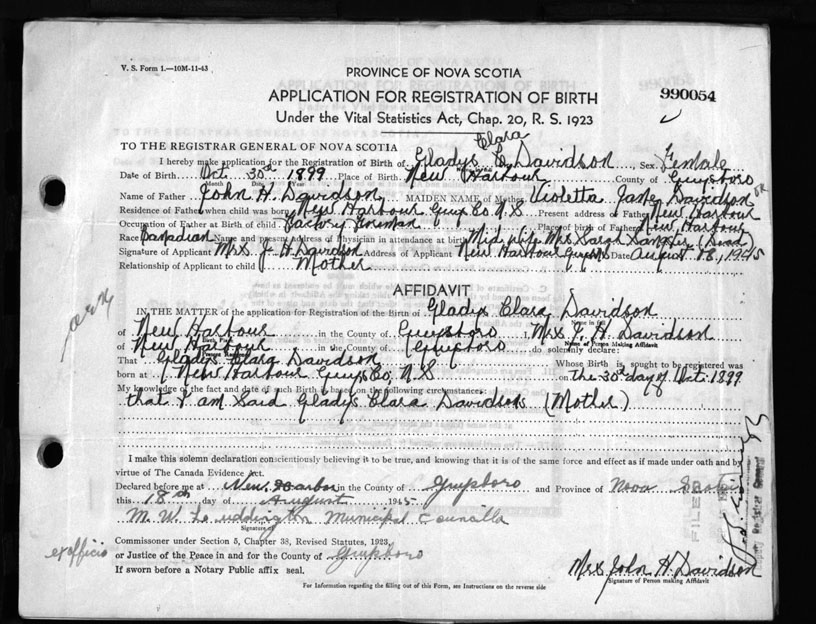 V. S. Form 1.—10M-11-43
PROVINCE OF NOVA SCOTIA
APPLICATION FOR REGISTRATION OF BIRTH
990054
Under the Vital Statistics Act, Chap. 20, R. S. 1923
Clara
TO THE REGISTRAR GENERAL OF NOVA SCOTIA
I hereby make application for the Registration of Birth of Gladys C. Davidson, Sex Female
Date of Birth Oct. 30th 1899 Place of Birth New Harbour County of Guysboro
Name of Father John H. Davidson MAIDEN NAME of Mother Violetta Jane Davidson
Residence of Father when child was born New Harbour Guys Co N.S Present address of Father New Harbour
Occupation of Father at Birth of child Factory Foreman Place of birth of Father New Harbour
Race Canadian Name and present address of Physician in attendance at birth Mid wife Mrs Sarah Sangster (Dead)
Signature of Applicant Mrs J H Davidson Address of Applicant New Harbour Guysb Date August 18, 1945
Relationship of Applicant to child Mother
AFFIDAVIT
IN THE MATTER of the application for Registration of the Birth of Gladys Clara Davidson
of New Harbour in the County of Guysboro, Mrs J. H. Davidson
of New Harbour in the County of Guysboro do solemnly declare:
Name of Person Making Affidavit
That Gladys Clara Davidson Whose Birth is sought to be registered was
born at New Harbour Guys Co, N.S on The 30th day of Oct. 1899
My knowledge of the fact and date of such Birth is based on the following circumstances:
that I am said Gladys Clara Davidson (Mother)
I make this solemn declaration conscientiously believing it to be true, and knowing that it is of the same force and effect as if made under oath and by
virtue of The Canada Evidence Act.
Declared before me at New Harbor in the County of Guysboro and Province of Nova Scotia
this 18th day of August 1945
M. W. Municipal
Signature of
Commissioner under Section 5, Chapter 38, Revised Statutes, 1923,
ex officio or Justice of the Peace in and for the County of Guysboro
If sworn before a Notary Public affix seal.
Mrs John H. Davidson
Signature of Person making Affidavit
For Information regarding the filling out of this Form, see Instructions on the reverse side